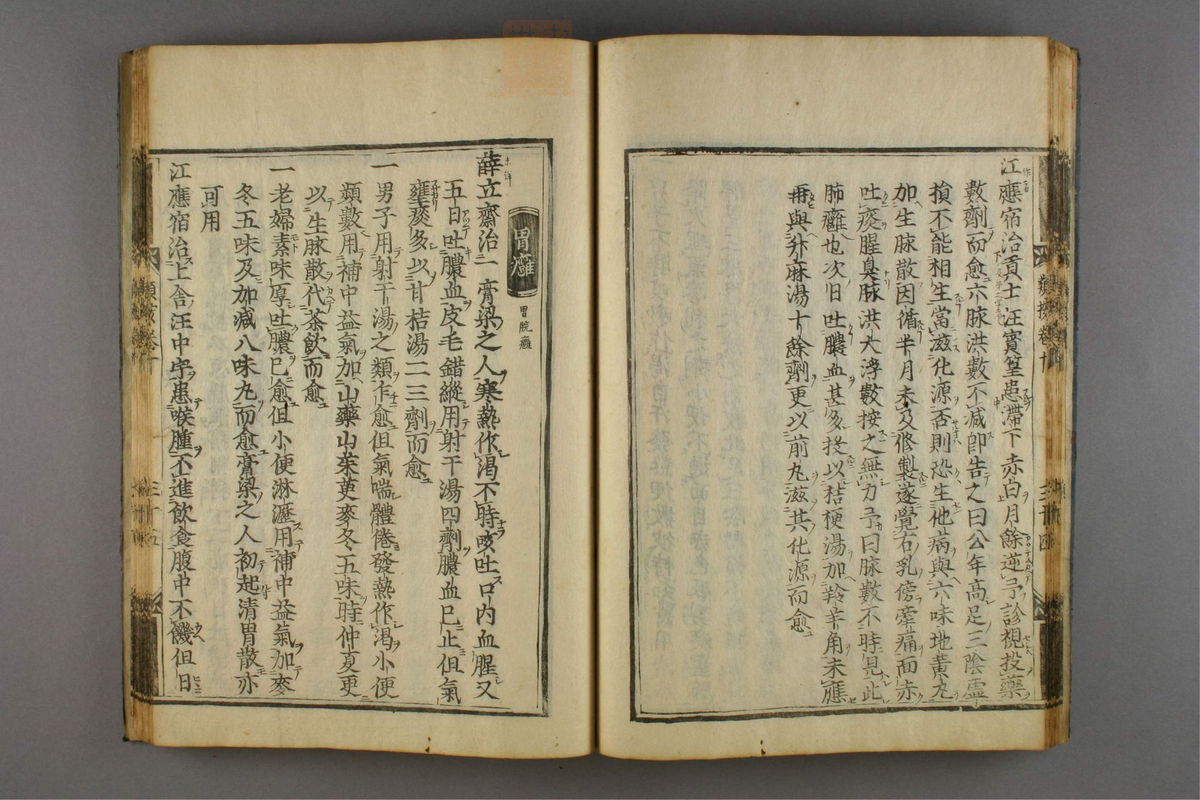 江應宿治貢士汪賓篁患滯下赤白月餘逆予診視投藥
數劑而愈六脉洪數不減卽告之曰公年高足三陰虛
損不能相生當滋化源否則恐生他病與六味地黃丸
加生脉散因循半月未及修製遂覺右乳傍牽痛而赤
吐痰腥臭脉洪大浮數按之無力予曰脉數不時見此
肺癰也次日吐膿血甚多投以桔梗湯加羚羊角未應
再與升麻湯十餘劑更以前丸滋其化源而愈
胃癰 胃脘癰
薛立齋治一膏粱之人寒熱作渴不時咳吐口内血腥又
五日吐膿血皮毛錯縱用射干湯四劑膿血已止但氣
壅痰多以甘桔湯二三劑而愈
一男子用射干湯之類乍愈但氣喘體倦發熱作渴小便
頻數用補中益氣加山藥山茱萸麥冬五味時仲夏更
以生脉散代茶飲而愈
一老婦素味厚吐膿已愈但小便淋瀝用補中益氣加麥
冬五味及加減八味丸而愈膏粱之人初起清胃散亦
可用
江應宿治上舍汪中宇患喉腫不進飲食腹中不饑但日